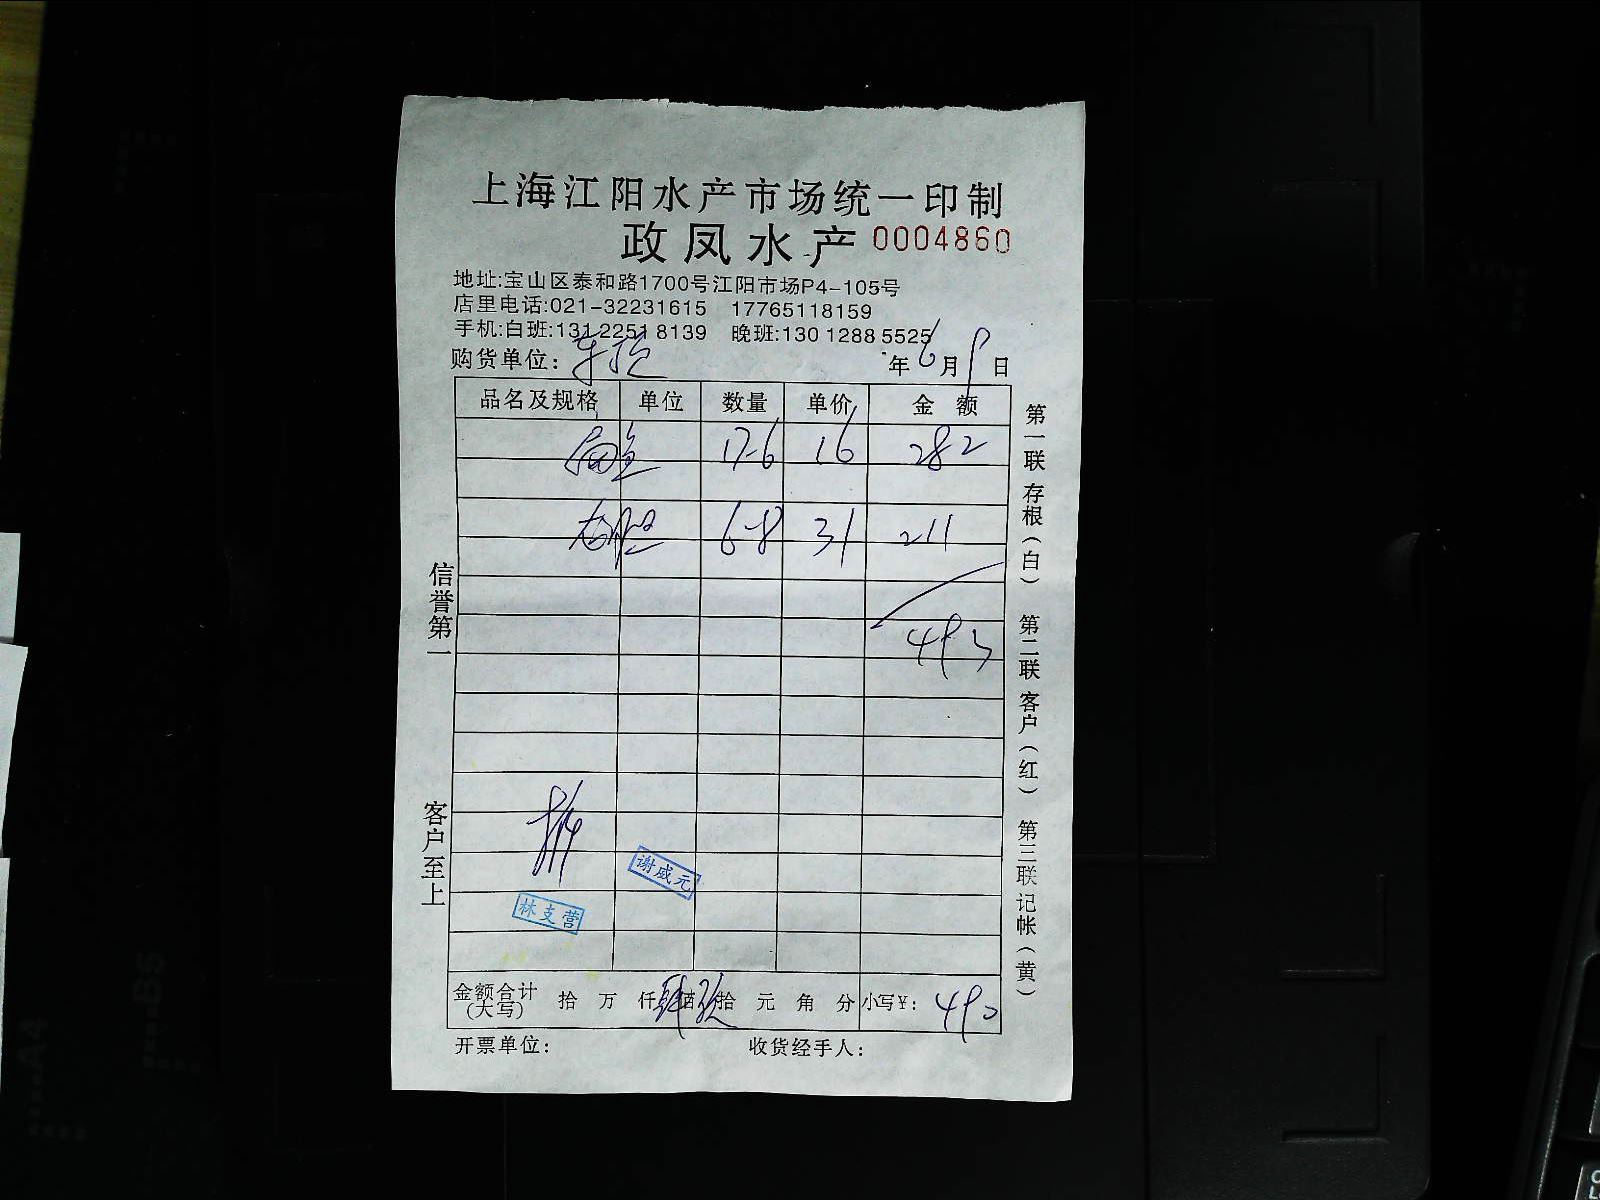 上海江阳水产市场统一印制
政凤水产 0004860
地址:宝山区泰和路1700号江阳市场P4-105号
店里电话:021-32231615 17765118159
手机:白班:131 2251 8139 晚班:130 1288 5525
购货单位: 年6月9日
品名及规格 单位 数量 单价 金额
17-6 16 282
6-8 31 211
493
信誉第一
客户至上
第一联存根(白) 第二联客户(红) 第三联记帐(黄)
谢成元
林支营
金额合计(大写) 拾 万 仟 佰 拾 元 角 分 小写¥: 490
开票单位: 收货经手人: